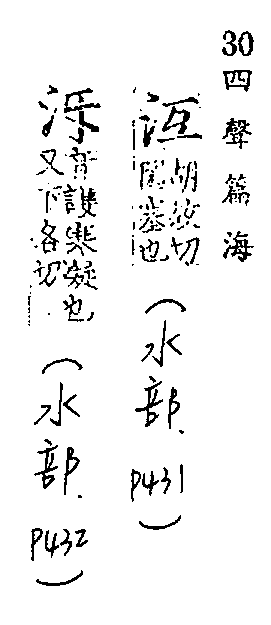 30四聲篇海
沍胡故切
閉塞也
(水部. P431)
音護寒凝也
又下各切
(水部. P432)